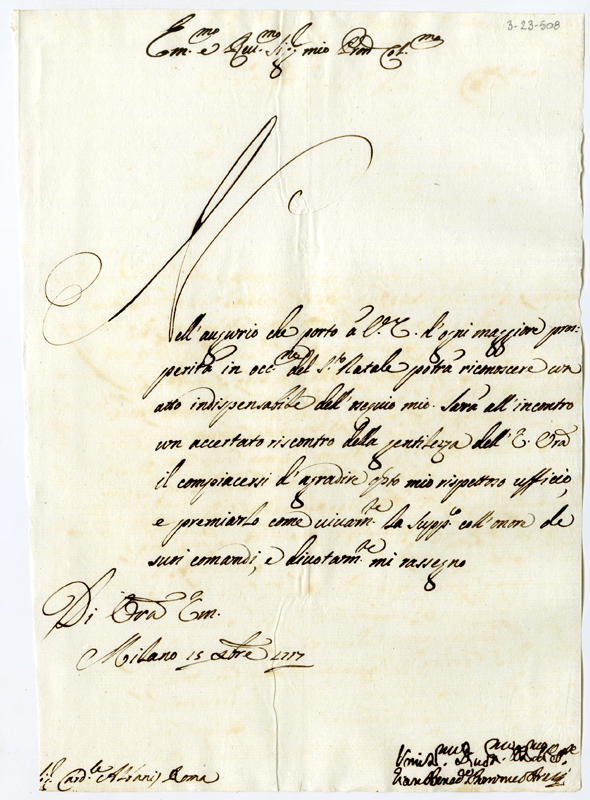 3-23-508
Em.mo e Reu.mo Sig.r mio Pron Col.mo
Nell'augurio che porto à V.E. d'ogni maggiore pros-
perità in occ.ne del S.to Natale potrà riconoscere un
atto indispensabile dell'ossequio mio. Sarà all'incontro
un accertato riscontro della gentilezza dell'E. Vra
il compiacersi d'agradire qsto mio rispettoso ufficio,
e premiarlo come vivam.te la supp.co coll'onore de
suoi comandi, e divotam.te mi rassegno
Di Vra Em.
Milano 15 Xbre 1717
Card.le Albani Roma